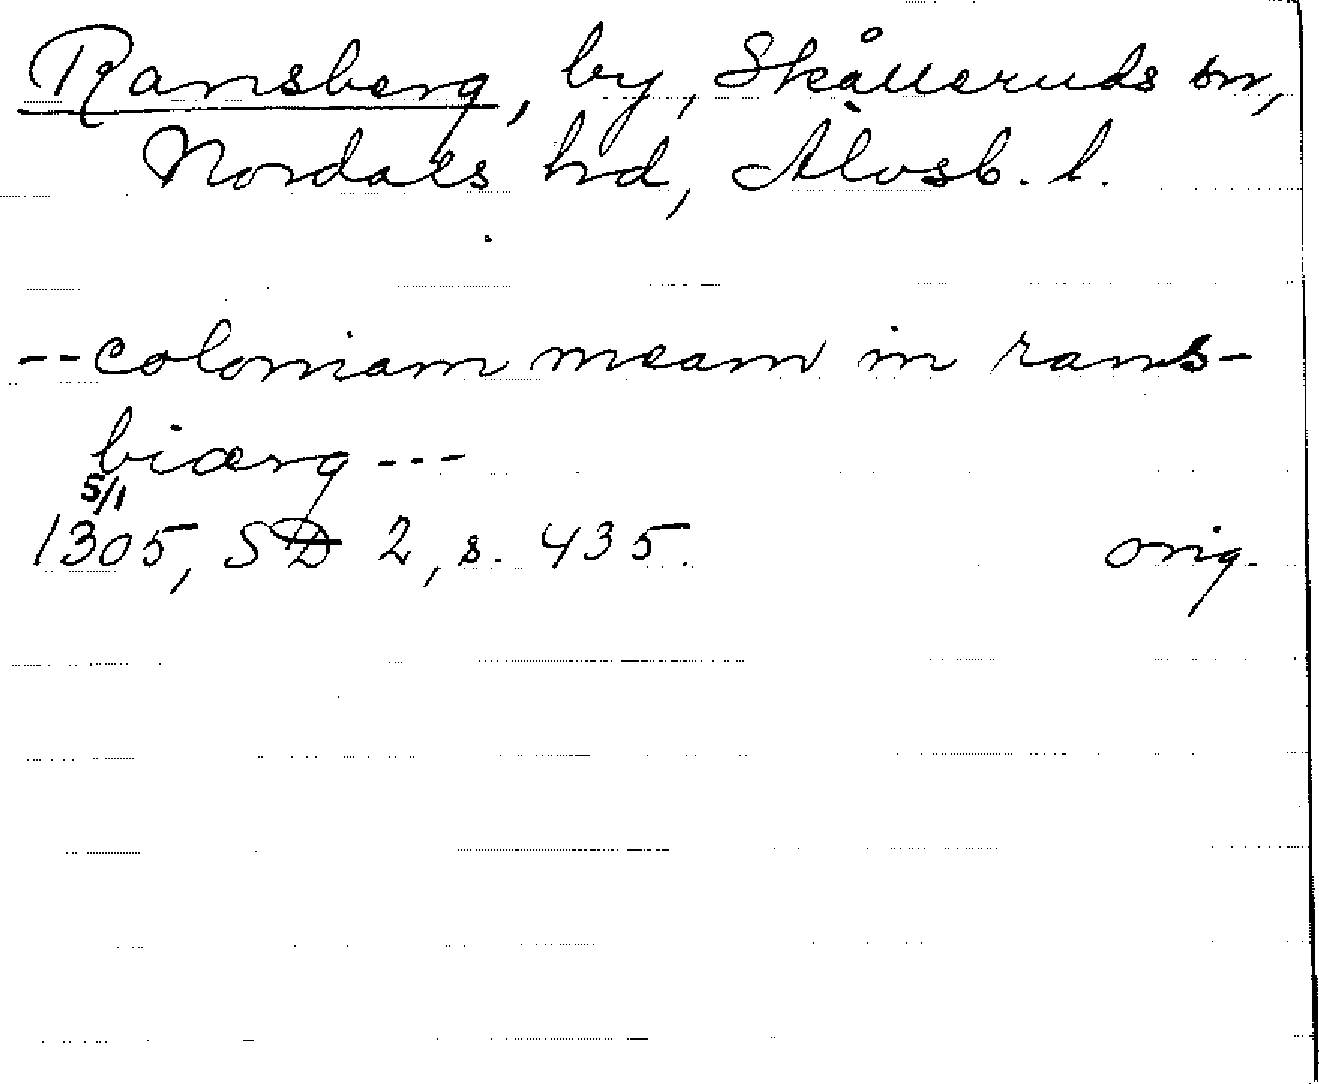 Ramsberg, by, Skålleruds sn,
Nordals hd, Älvsb. l.
--coloniam meam in rams-
biærg---
5/1
1305, SD 2, s. 435. orig.